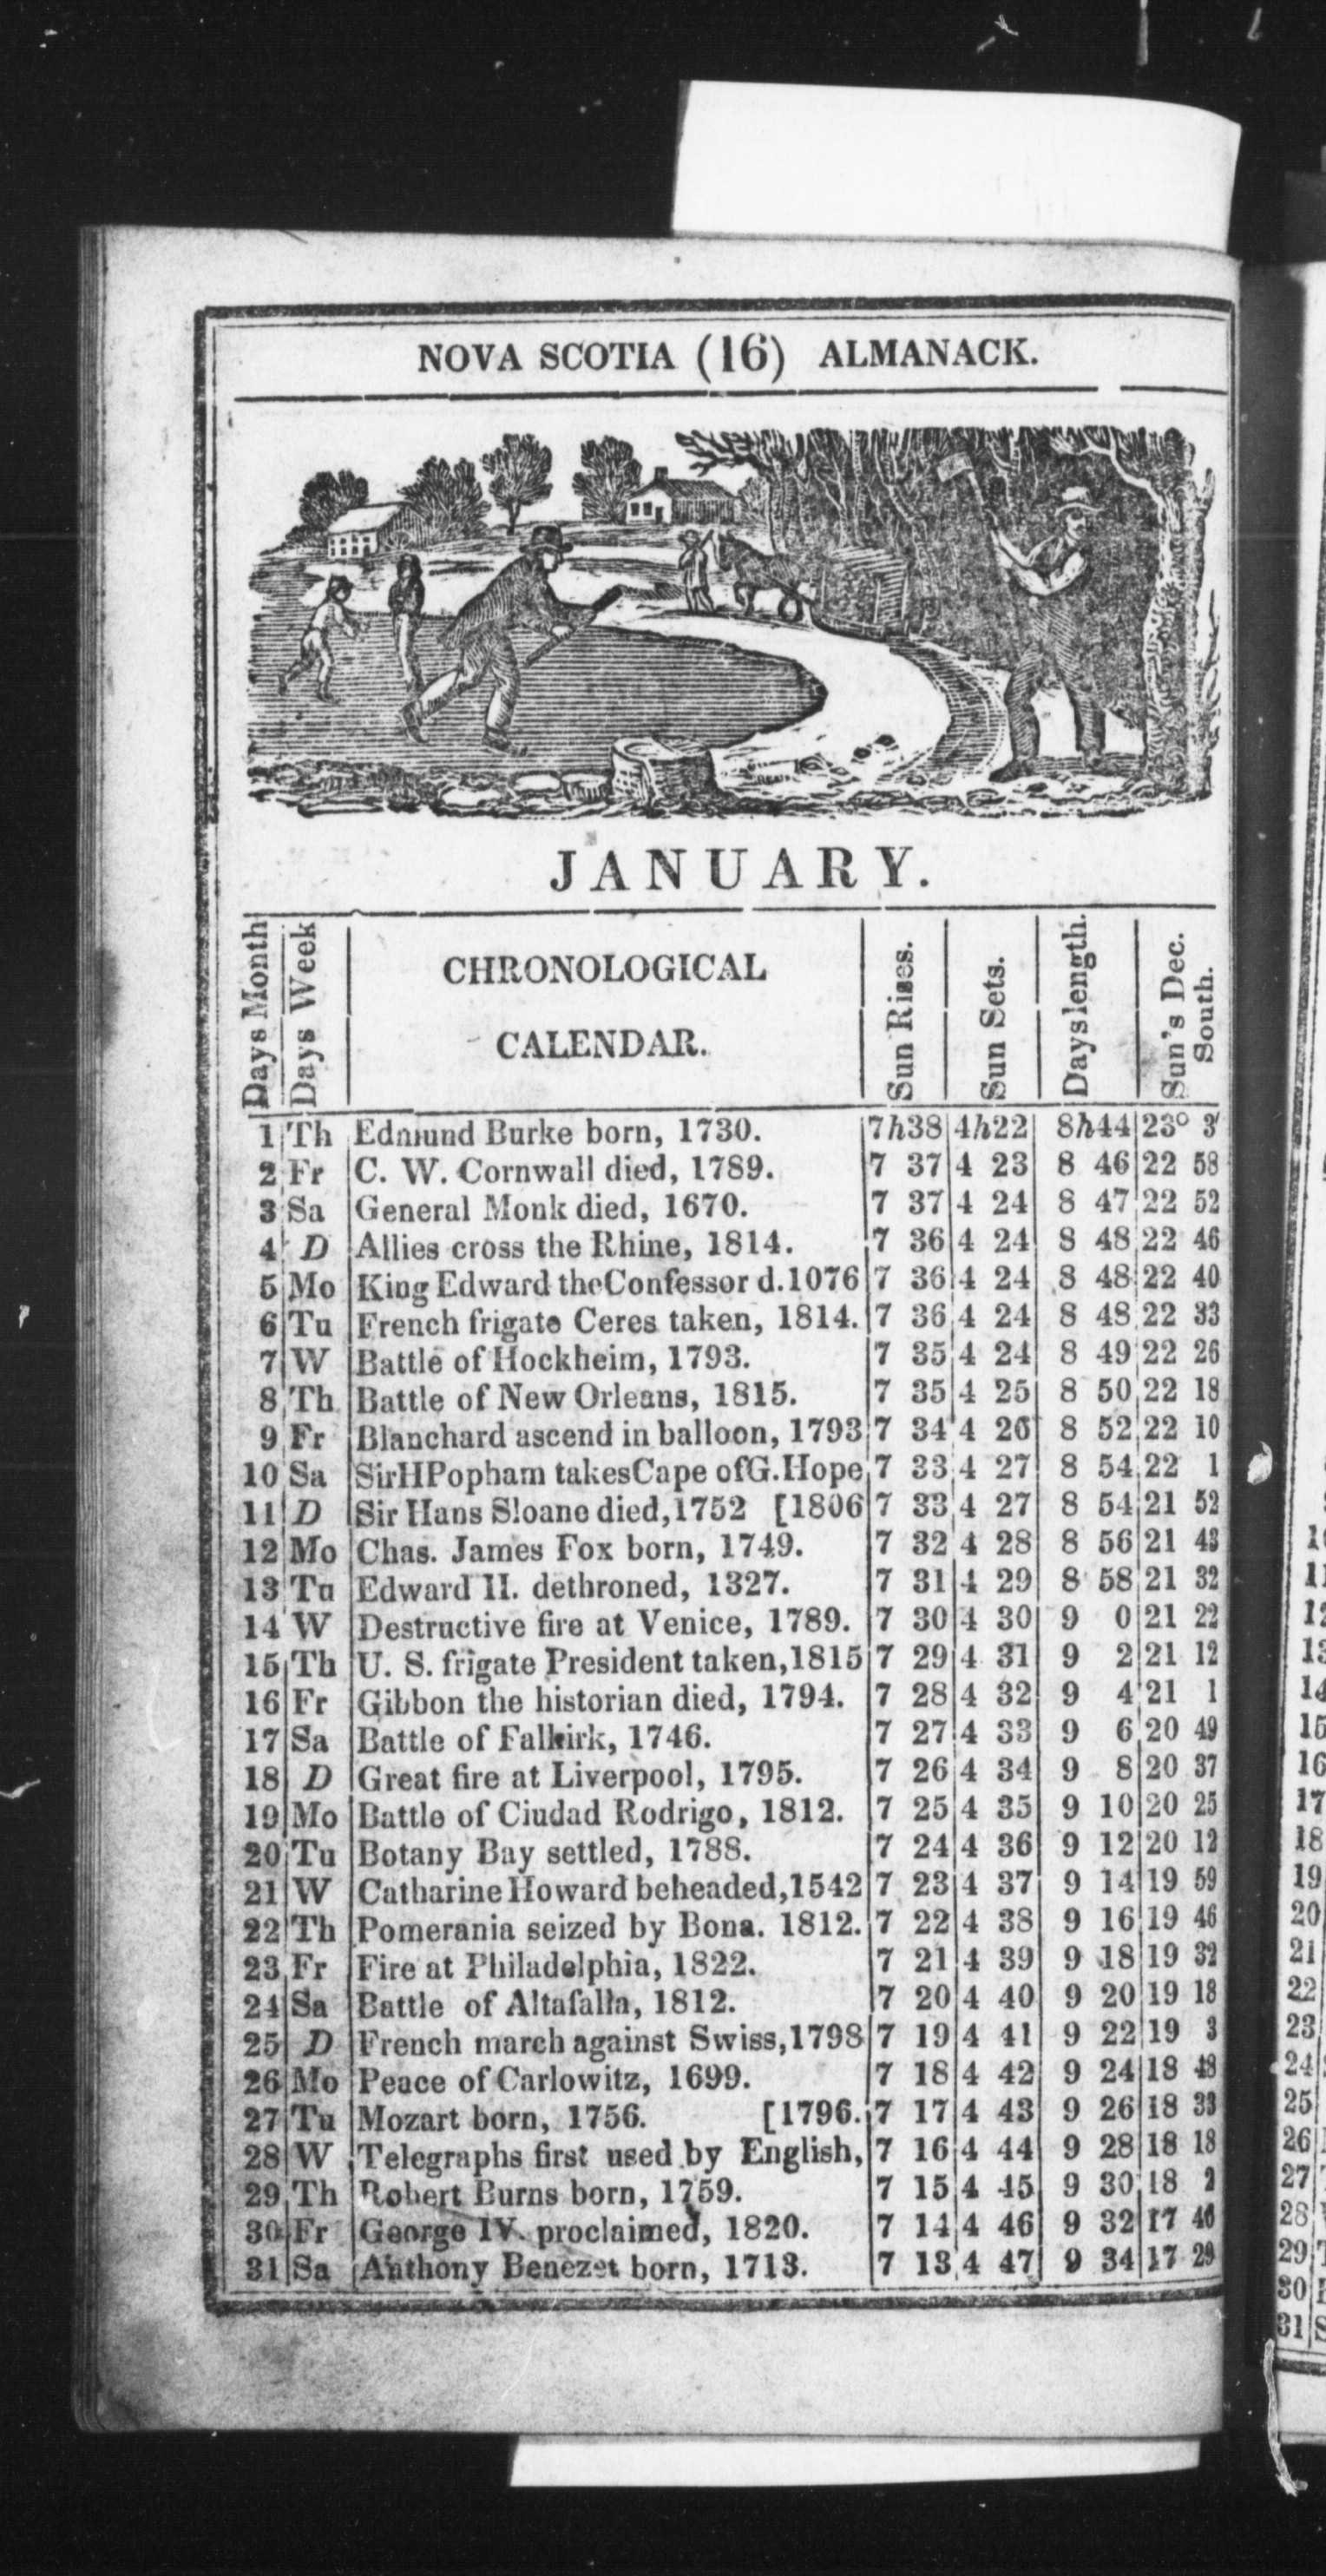 NOVA SCOTIA (16) ALMANACK.
JANUARY.
Days Month
Days Week
CHRONOLOGICAL
CALENDAR.
Sun Rises.
Sun Sets.
Days length.
Sun's Dec.
South.
1 Th Edmund Burke born, 1730. 7h38 4h22 8h44 23° 3'
2 Fr C. W. Cornwall died, 1789. 7 37 4 23 8 46 22 58
3 Sa General Monk died, 1670. 7 37 4 24 8 47 22 52
4 D Allies cross the Rhine, 1814. 7 36 4 24 8 48 22 46
5 Mo King Edward the Confessor d. 1076 7 36 4 24 8 48 22 40
6 Tu French frigate Ceres taken, 1814. 7 36 4 24 8 48 22 33
7 W Battle of Hockheim, 1793. 7 35 4 24 8 49 22 26
8 Th Battle of New Orleans, 1815. 7 35 4 25 8 50 22 18
9 Fr Blanchard ascend in balloon, 1793 7 34 4 26 8 52 22 10
10 Sa Sir H Popham takes Cape of G. Hope 7 33 4 27 8 54 22 1
11 D Sir Hans Sloane died, 1752 [1806 7 33 4 27 8 54 21 52
12 Mo Chas. James Fox born, 1749. 7 32 4 28 8 56 21 43
13 Tu Edward II. dethroned, 1327. 7 31 4 29 8 58 21 32
14 W Destructive fire at Venice, 1789. 7 30 4 30 9 0 21 22
15 Th U. S. frigate President taken, 1815 7 29 4 31 9 2 21 12
16 Fr Gibbon the historian died, 1794. 7 28 4 32 9 4 21 1
17 Sa Battle of Falkirk, 1746. 7 27 4 33 9 6 20 49
18 D Great fire at Liverpool, 1795. 7 26 4 34 9 8 20 37
19 Mo Battle of Ciudad Rodrigo, 1812. 7 25 4 35 9 10 20 25
20 Tu Botany Bay settled, 1788. 7 24 4 36 9 12 20 12
21 W Catharine Howard beheaded, 1542 7 23 4 37 9 14 19 59
22 Th Pomerania seized by Bona. 1812. 7 22 4 38 9 16 19 46
23 Fr Fire at Philadelphia, 1822. 7 21 4 39 9 18 19 32
24 Sa Battle of Altafalla, 1812. 7 20 4 40 9 20 19 18
25 D French march against Swiss, 1798 7 19 4 41 9 22 19 3
26 Mo Peace of Carlowitz, 1699. 7 18 4 42 9 24 18 48
27 Tu Mozart born, 1756. [1796. 7 17 4 43 9 26 18 33
28 W Telegraphs first used by English, 7 16 4 44 9 28 18 18
29 Th Robert Burns born, 1759. 7 15 4 45 9 30 18 2
30 Fr George IV. proclaimed, 1820. 7 14 4 46 9 32 17 46
31 Sa Anthony Benezet born, 1713. 7 13 4 47 9 34 17 29